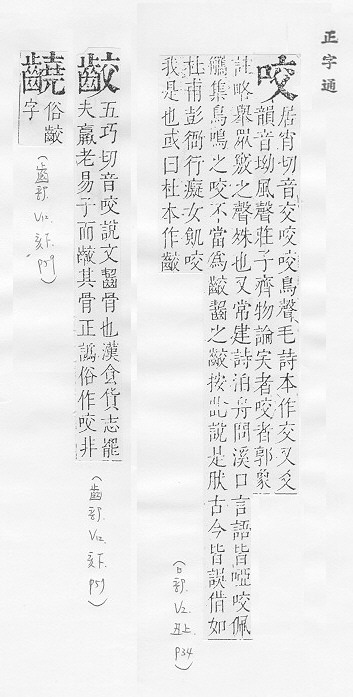 正字通
咬居肴切音交咬咬鳥聲毛詩本作交又爻
韻音坳風聲莊子齊物論宎者咬者郭象
註略舉眾竅之聲殊也又常建詩泊舟問溪口言語皆啞咬佩
觿集鳥鳴之咬不當為齩齧之齩按此說是肰古今皆誤借如
杜甫彭衙行癡女飢咬
我是也或曰杜本作齩
(口部. V2. 丑上. P34)
齩五巧切音咬說文齧骨也漢食貨志罷
夫羸老易子而齩其骨正譌俗作咬非
(齒部. V12. 亥下. P59)
俗齩
字
(齒部. V12. 亥下. P59)